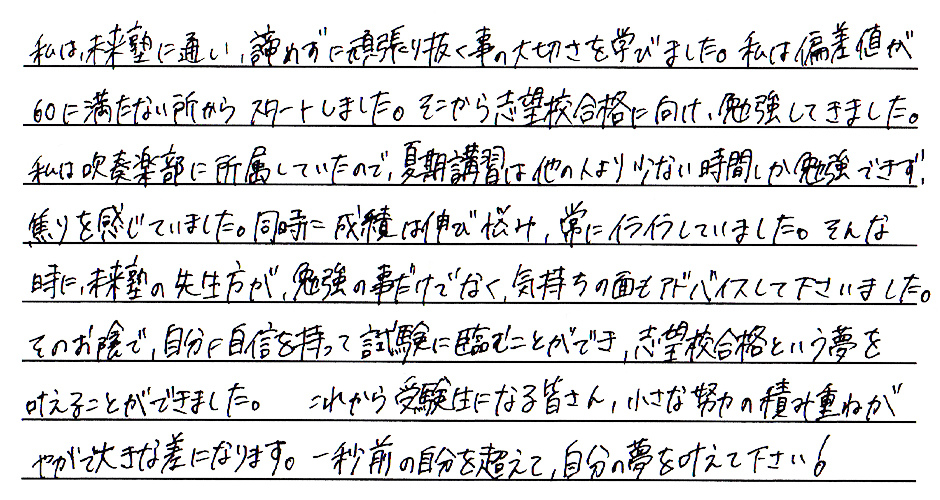 私は、未来塾に通い、諦めずに頑張り抜く事の大切さを学びました。私は偏差値が
60に満たない所からスタートしました。そこから志望校合格に向け、勉強してきました。
私は吹奏楽部に所属していたので、夏期講習は他の人より少ない時間しか勉強できず、
焦りを感じていました。同時に成績は伸び悩み、常にイライラしていました。そんな
時に、未来塾の先生方が、勉強の事だけでなく、気持ちの面もアドバイスして下さいました。
そのお陰で、自分に自信を持って試験に臨むことができ、志望校合格という夢を
叶えることができました。 これから受験生になる皆さん、小さな努力の積み重ねが
やがて大きな差になります。一秒前の自分を超えて、自分の夢を叶えて下さい。